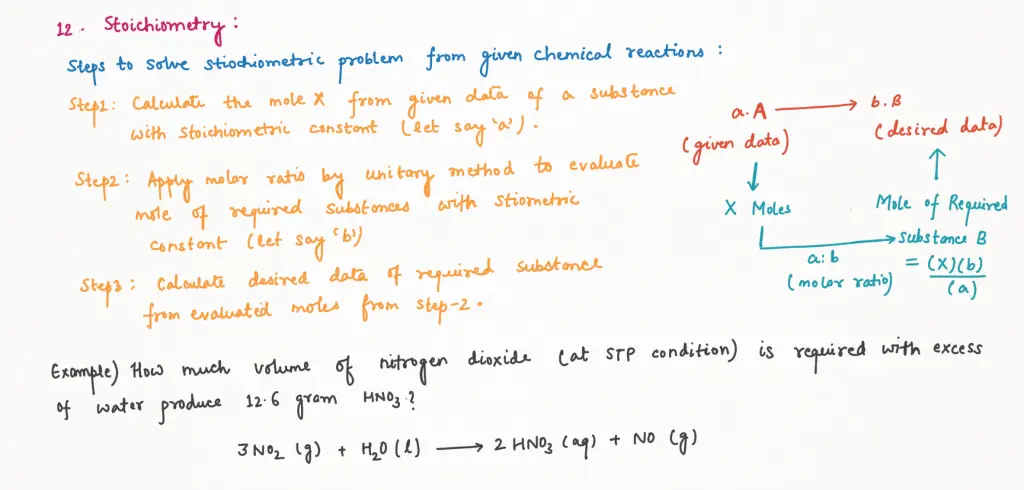 12. Stoichiometry :
Steps to solve stiochiometric problem from given chemical reactions :
Step1: Calculate the mole X from given data of a substance
with stoichiometric constant (let say 'a').
Step2: Apply molar ratio by unitary method to evaluate
mole of required substances with stiometric
constant (let say 'b')
Step3: Calculate desired data of required substance
from evaluated moles from step-2.
a.A ⟶ b.B
(given data) (desired data)
X Moles
Mole of Required
substance B
a:b
(molar ratio)
= (X)(b)
(a)
Example) How much volume of nitrogen dioxide (at STP condition) is required with excess
of water produce 12.6 gram HNO₃?
3NO₂ (g) + H₂O (l) ⟶ 2 HNO₃ (aq) + NO (g)